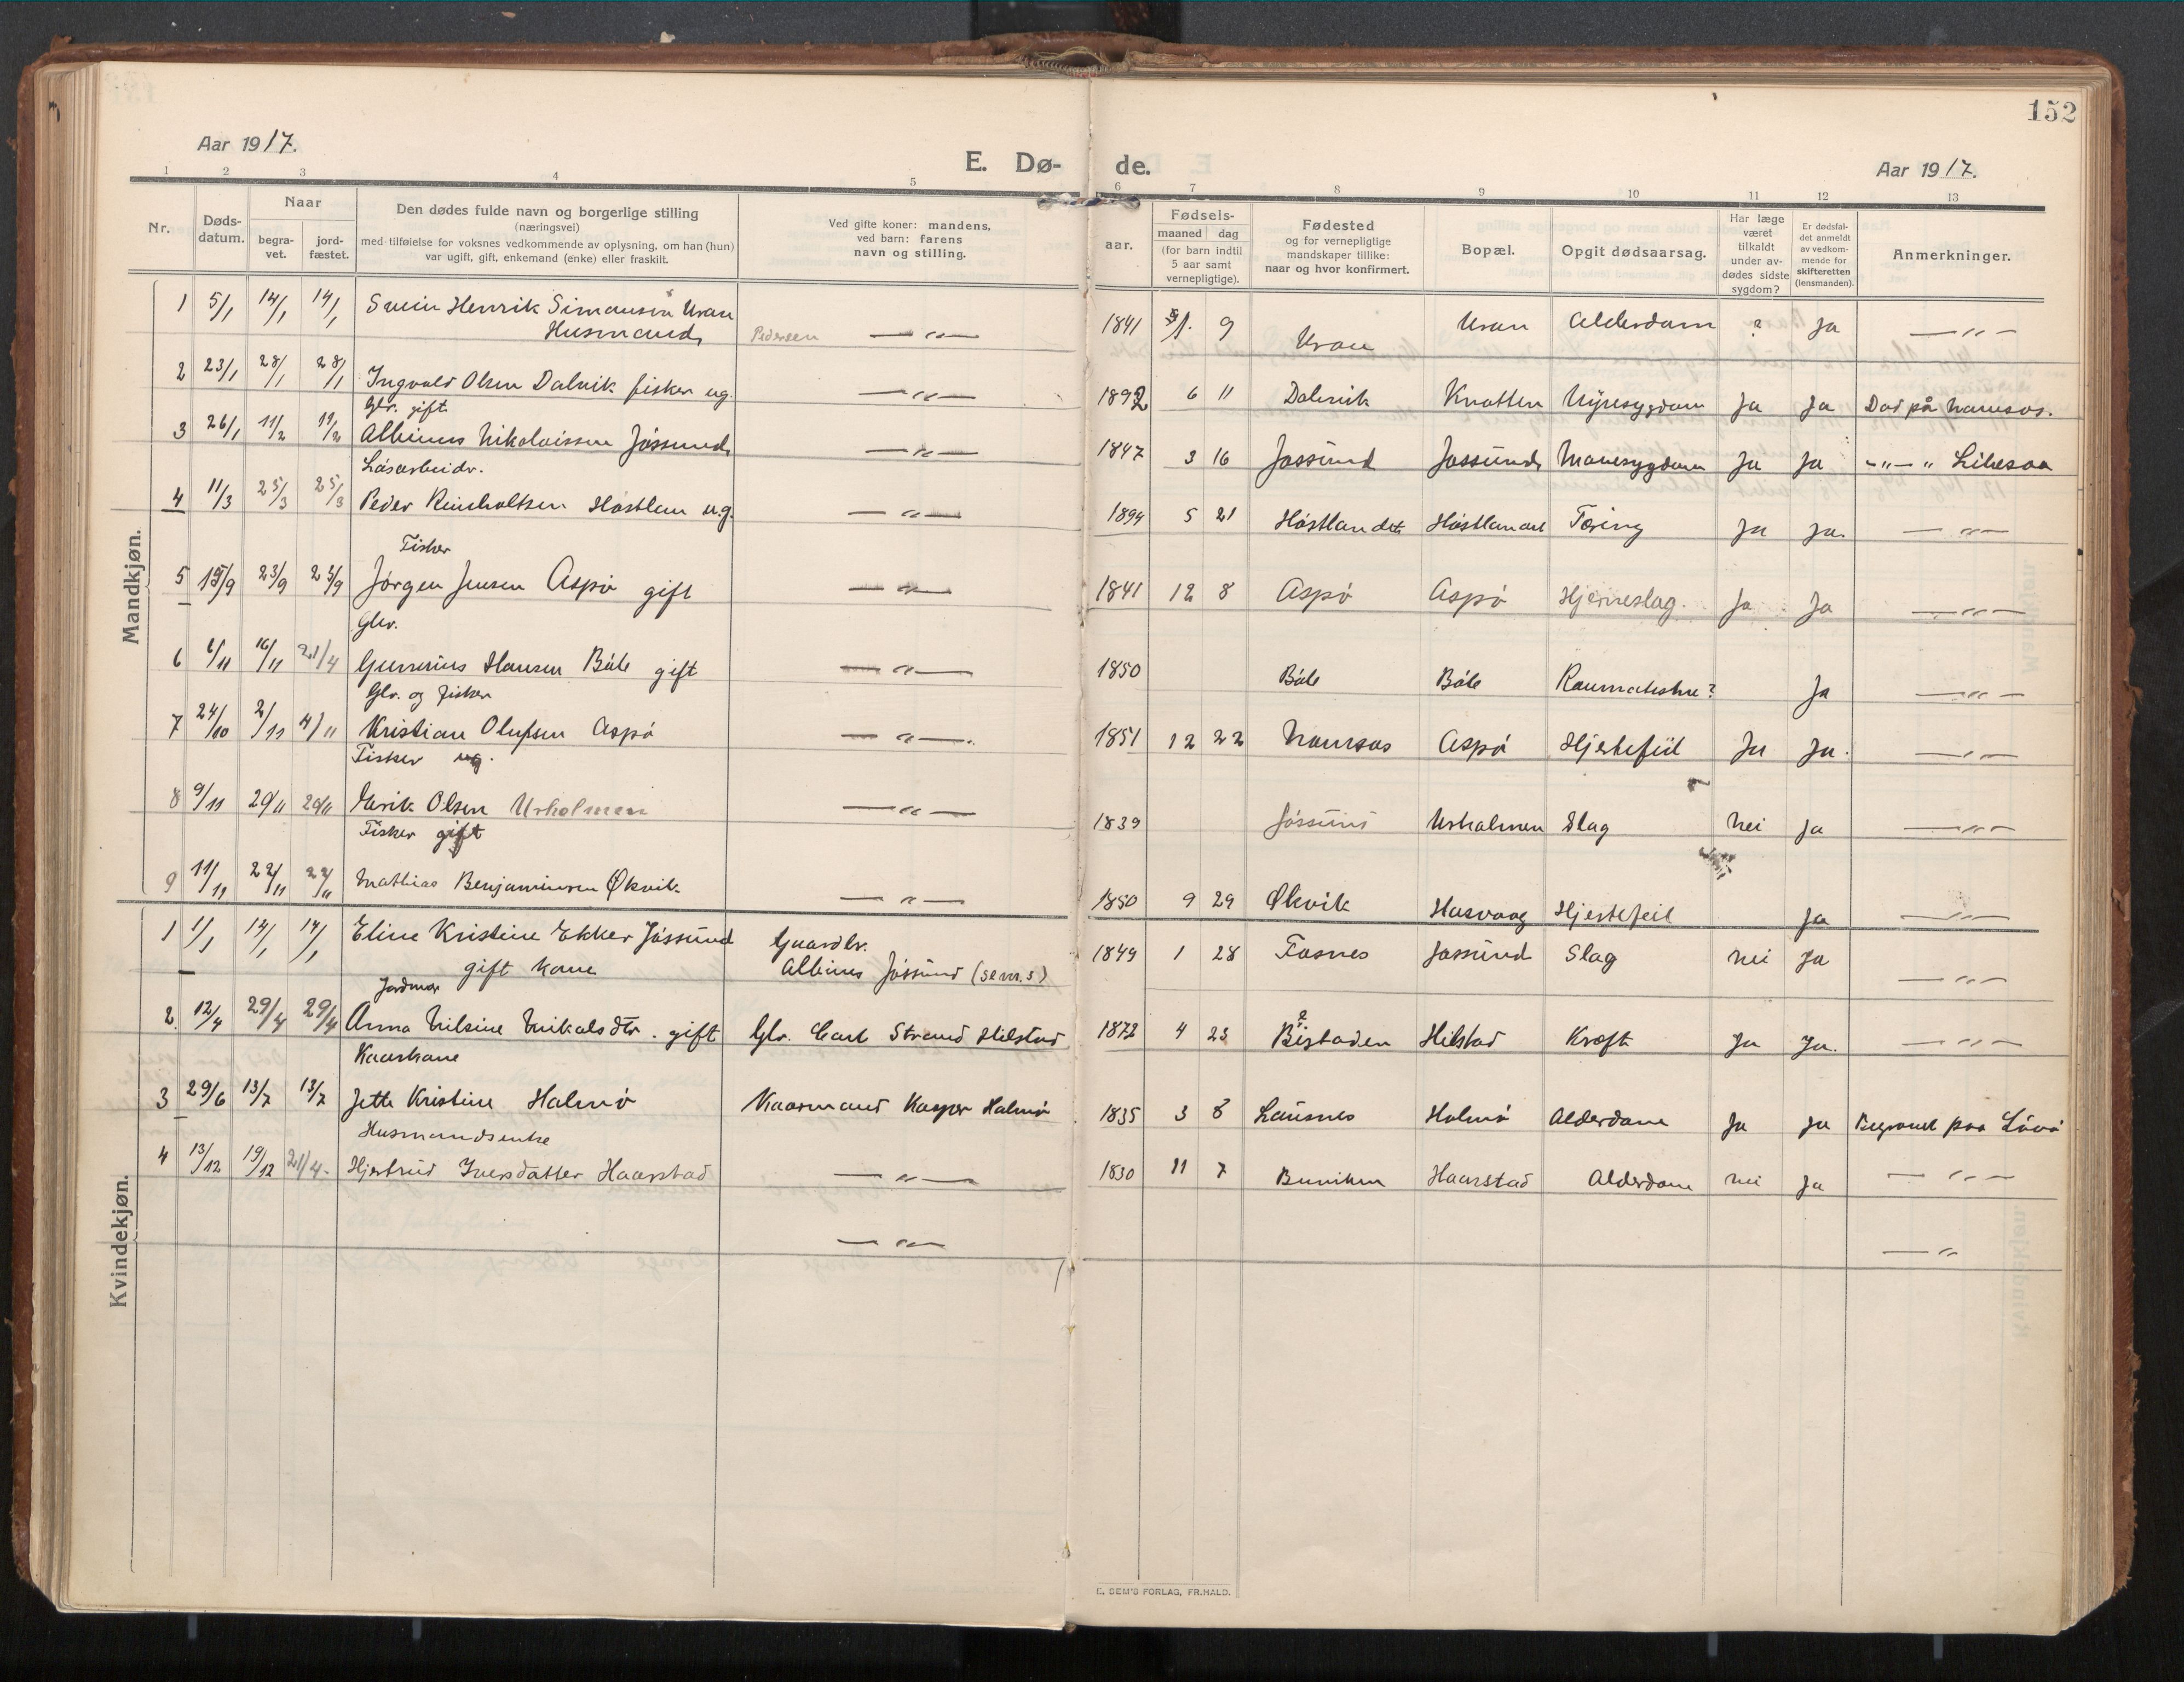 152
Aar 1917.
E. Dø-
de.
Aar 1917.
1 2 3 4 5 6 7 8 9 10 11 12 13
Nr.
Døds-
datum.
Naar
begra-
vet.
jord-
fæstet.
Den dødes fulde navn og borgerlige stilling
(næringsvei)
med tilføielse for voksnes vedkommende av oplysning, om han (hun)
var ugift, gift, enkemand (enke) eller fraskilt.
Ved gifte koner: mandens,
ved barn: farens
navn og stilling.
aar.
Fødsels-
maaned dag
(for barn indtil
5 aar samt
vernepligtige).
Fødested
og for vernepligtige
mandskaper tillike:
naar og hvor konfirmert.
Bopæl.
Opgit dødsaarsag.
Har læge
været
tilkaldt
under av-
dødes sidste
sygdom?
Er dødsfal-
det anmeldt
av vedkom-
mende for
skifteretten
(lensmanden).
Anmerkninger.
Mandkjøn.
1 5/1 14/1 14/1 Svein Henrik Simonsen Uran
Husmand Pedersen — „ — 1841 9 Uran Uran Alderdom ? Ja — „ —
2 23/1 28/1 28/1 Ingvald Olsen Dalvik fisker ug. — „ — 1892 6 11 Dalvik Knotten Nyresygdom Ja Ja Død på Namsos.
Glr. gift
3 26/1 11/2 11/2 Albinus Nikolaissen Jøssund — „ — 1847 3 16 Jøssund Jøssund Mavesygdom Ja Ja — „ — „
Løsarbeidr.
4 11/3 25/3 25/3 Peder Reinholtsen Høstlan ug. — „ — 1894 5 21 Høstlandet Høstlandet Tæring Ja Ja. — „ —
Fisker
5 15/9 23/9 23/9 Jørgen Jensen Aspø gift — „ — 1841 12 8 Aspø Aspø Hjerneslag. Ja Ja — „ —
Glr.
6 6/11 16/11 21/4 Gunerius Hansen Båle gift — „ — 1850 Båle Båle Raumatisme? Ja — „ —
Glr. og fisker
7 24/10 2/11 4/11 Kristian Olufsen Aspø — „ — 1851 12 22 Namsos Aspø Hjertefeil Ja Ja. — „ —
Fisker ug.
8 9/11 20/11 20/11 Erik Olsen Urholmen — „ — 1839 Jøssund Urholmen Slag Nei Ja — „ —
Fisker gift
9 11/11 22/11 22/11 Mathias Benjaminsen Økvik — „ — 1850 9 29 Økvik Hasvaag Hjertefeil Ja — „ —
Kvindekjøn.
1 1/1 14/1 14/1 Eline Kristine Ekker Jøssund Gaardbr. 1849 1 28 Fosnes Jøssund Slag Nei Ja — „ —
gift kone Albinus Jøssund (se nr. 3)
Jordmor
2. 12/4 29/4 29/4 Anna Nilsine Nikolsdtr. gift Glr. Carl Strand Hilstad 1872 4 23 Bistaden ? Hilstad Kræft Ja Ja. — „ —
Kaarkone
3 29/6 13/7 13/7 Jette Kristine Halmø Kaarmand Kasper Halmø 1835 3 8 Lausnes Halmø Alderdom Ja Ja Begravet paa Løvø
Husmandsenke
4 13/12 19/12 21/4 Hjertrud Iversdatter Haarstad — „ — 1830 11 7 Haarstad Alderdom Nei Ja — „ —
— „ — — „
E. SEM'S FORLAG, FR.HALD.